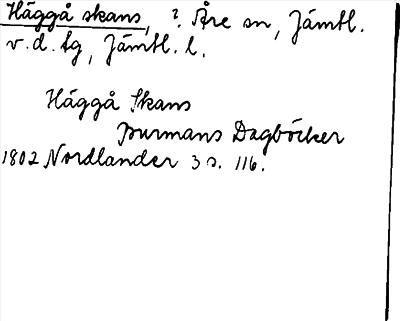 Häggå skans, ?. Åre sn, Jämtl.
v. d. tg, Jämtl. l.
Häggå Skans
Burmans Dagböcker
1802 Nordlander 3 s. 116.